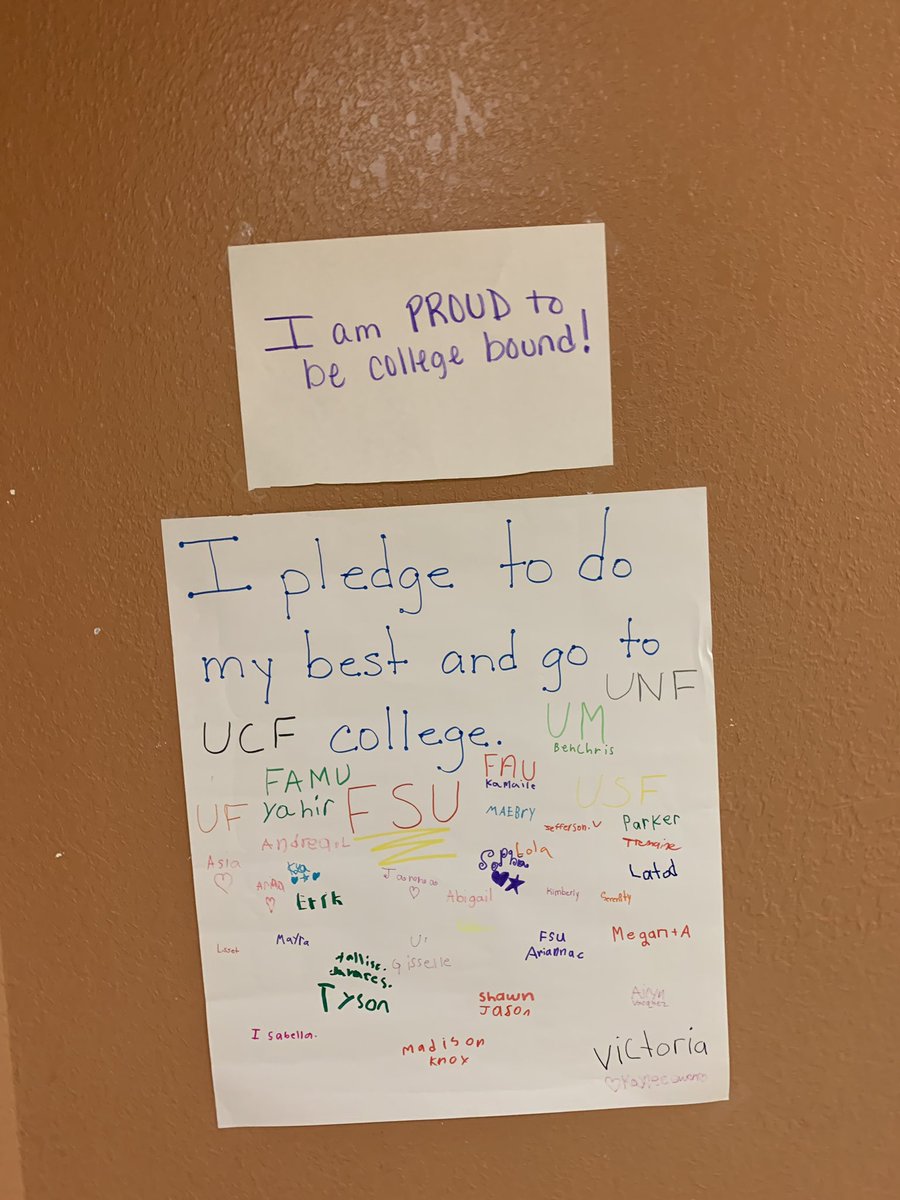 I am PROUD to
be college bound!
I pledge to do
my best and go to
UNF
UCF college.
UM
BenChris
FAMU
FAU
Kamaile
UF
yahir
FSU
MAEBRY
USF
Jefferson.V
Parker
Andrea.L
Tremaine
Asia
Kya
Sophia
Lola
Latod
Erik
Abigail
Kimberly
Serenity
Lisset
Mayra
Gisselle
FSU
Ariannac
Megan+A
Tyson
Shawn
Jason
Isabella.
Madison
Knox
Victoria